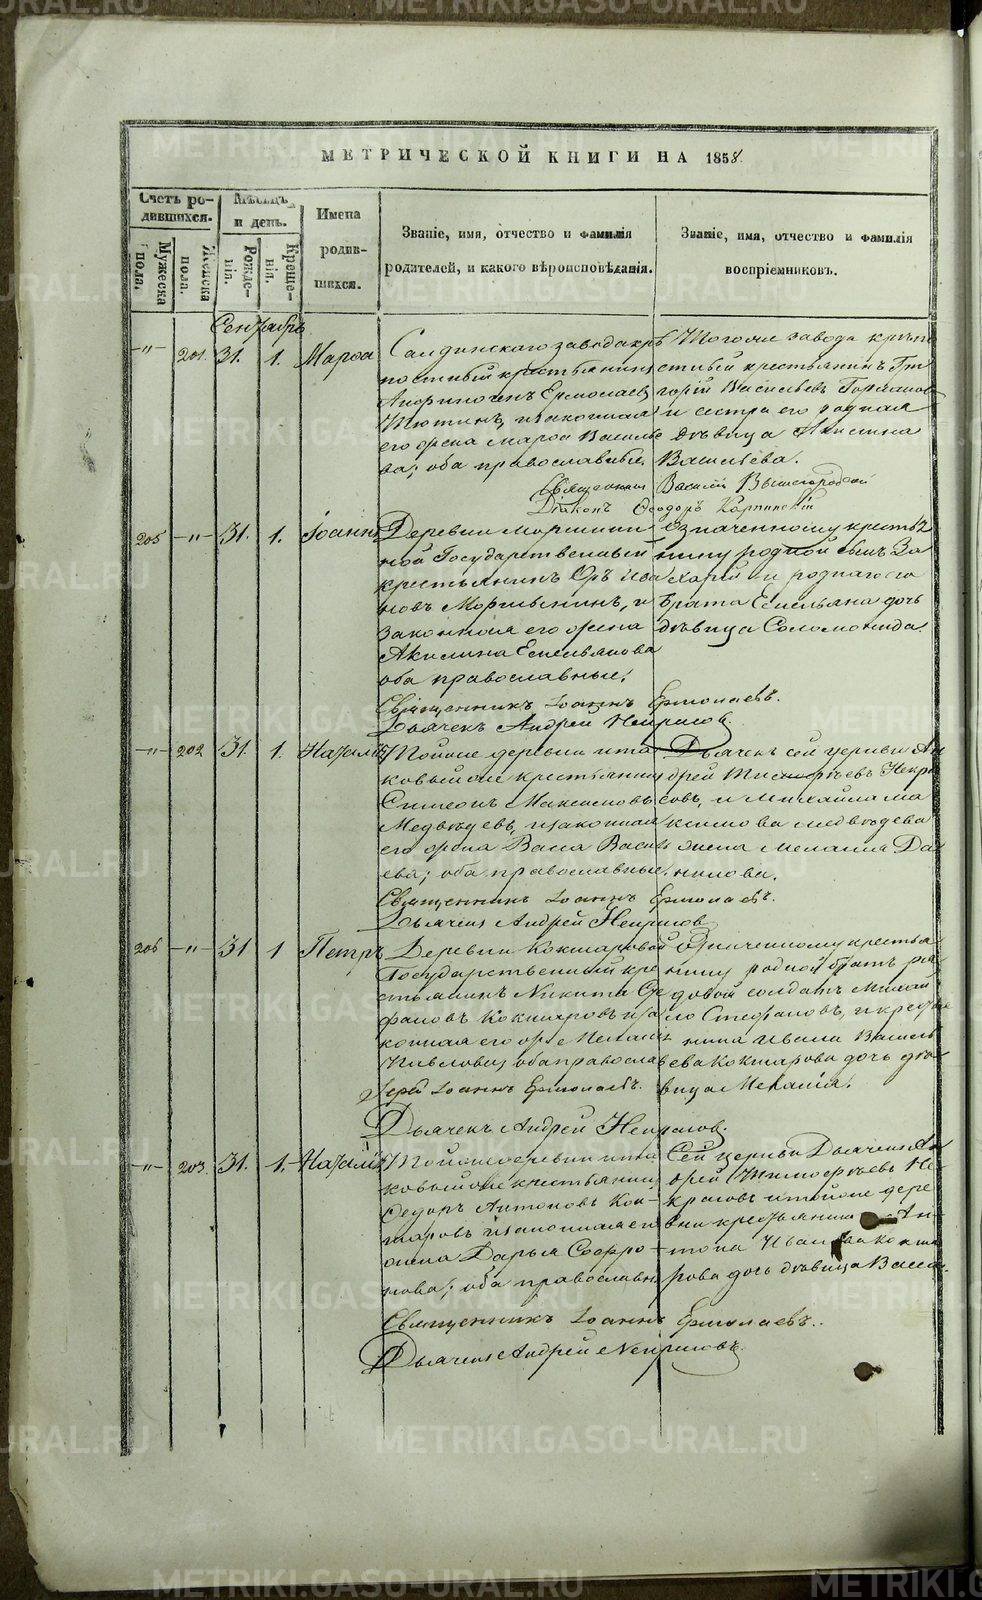 METRIKI.GASO-URAL.RU
МЕТРИЧЕСКОЙ КНИГИ НА 1858.
Счетъ ро-
дившихся.
Мужеска пола.
Женска пола.
Мѣсяцъ
и день.
Рожде-
нія.
Креще-
нія.
Имена
родив-
шихся.
Званіе, имя, отчество и фамилія
родителей, и какого вѣроисповѣданія.
Званіе, имя, отчество и фамилія
воспріемниковъ.
Сентябрь
-"- 201. 31. 1. Марѳа
Салдинскаго завода крѣ
постный крестьянинъ
Ермолаевъ
законная
его жена Марѳа Василье
ва; оба православные.
Тогоже завода крѣпо
стный крестьянинъ Гри
горій Васильевъ
и сестра его родная
дѣвица Акилина
Васильева.
Священникъ Василій Вышегородской
Діаконъ Ѳеодоръ Карпинскій
205 -"- 31. 1. Іоаннъ
Деревни Моршини
ной Государственный
крестьянинъ Ива
новъ Моршининъ, и
законная его жена
Акилина Емельянова
оба православные.
Означенному крестья
нину родной сынъ За
харій и роднаго его
брата Емельяна дочь
дѣвица Соломонида.
Священникъ Іоаннъ Ермолаевъ.
Дьячекъ Андрей Некрасовъ.
-"- 202 31. 1. Наталія
Тойже деревни и та
ковыйже крестьянинъ
Симеонъ Максимовъ
Медвѣдевъ, и законная
его жена Васса Василь
ева; оба православные.
Дьячекъ сей церкви Ан
дрей Тимоѳѣевъ Некра
совъ, и Михайла Ма
ксимова Медвѣдева
жена Меланія Да
нилова.
Священникъ Іоаннъ Ермолаевъ.
Дьячекъ Андрей Некрасов
206 -"- 31 1 Петръ
Деревни Кокшаровой
Государственный кре
стьянинъ Никита Сте
фановъ Кокшаровъ и за
конная его жена Мелан
Павлова; оба православ
Означенному крестья
нину родной братъ ря
довой солдатъ Михай
ло Стефановъ, и крестья
нина Ивана Василь
ева Кокшарова дочь дѣ
вица Меланія.
Іерей Іоаннъ Ермолаевъ.
Дьячекъ Андрей Некрасов.
-"- 203. 31. 1. Наталія
Тойже деревни и та
ковыйже крестьянинъ
Ѳедоръ Антоновъ Кок-
шаровъ и законная его
жена Дарья Софро-
нова; оба православн
Сей церкви Дьячекъ Ан
дрей Тимоѳѣевъ Не
красовъ и тойже дере
вни крестьянина Ан-
тона Иванова Кокша
рова дочь дѣвица Васса.
Священникъ Іоаннъ Ермолаевъ.
Дьячекъ Андрей Некрасовъ.